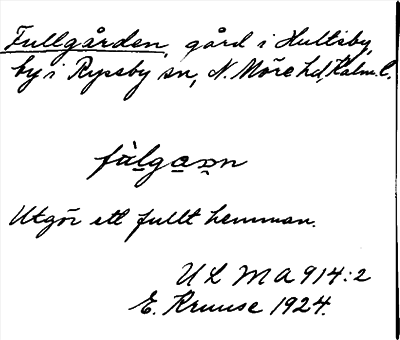 Fullgården, gård i Hultsby,
by i Ryssby sn, N. Möre hd, Kalm. l.
fùlgaɲn
Utgör ett fullt hemman.
ULMA 914:2
E. Kruuse 1924.